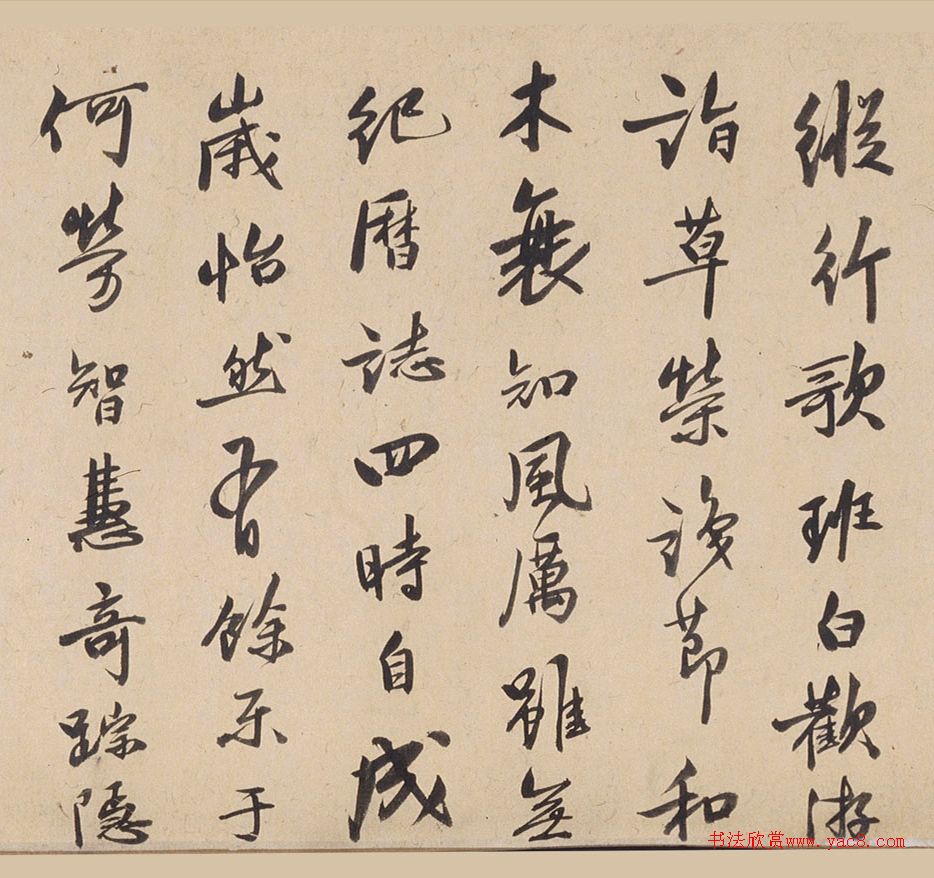 縱行歌班白歡游
詣草榮識節和
木衰知風厲雖無
紀曆誌四時自成
歲怡然有餘樂于
何勞智慧奇踪隱
书法欣赏www.yac8.com